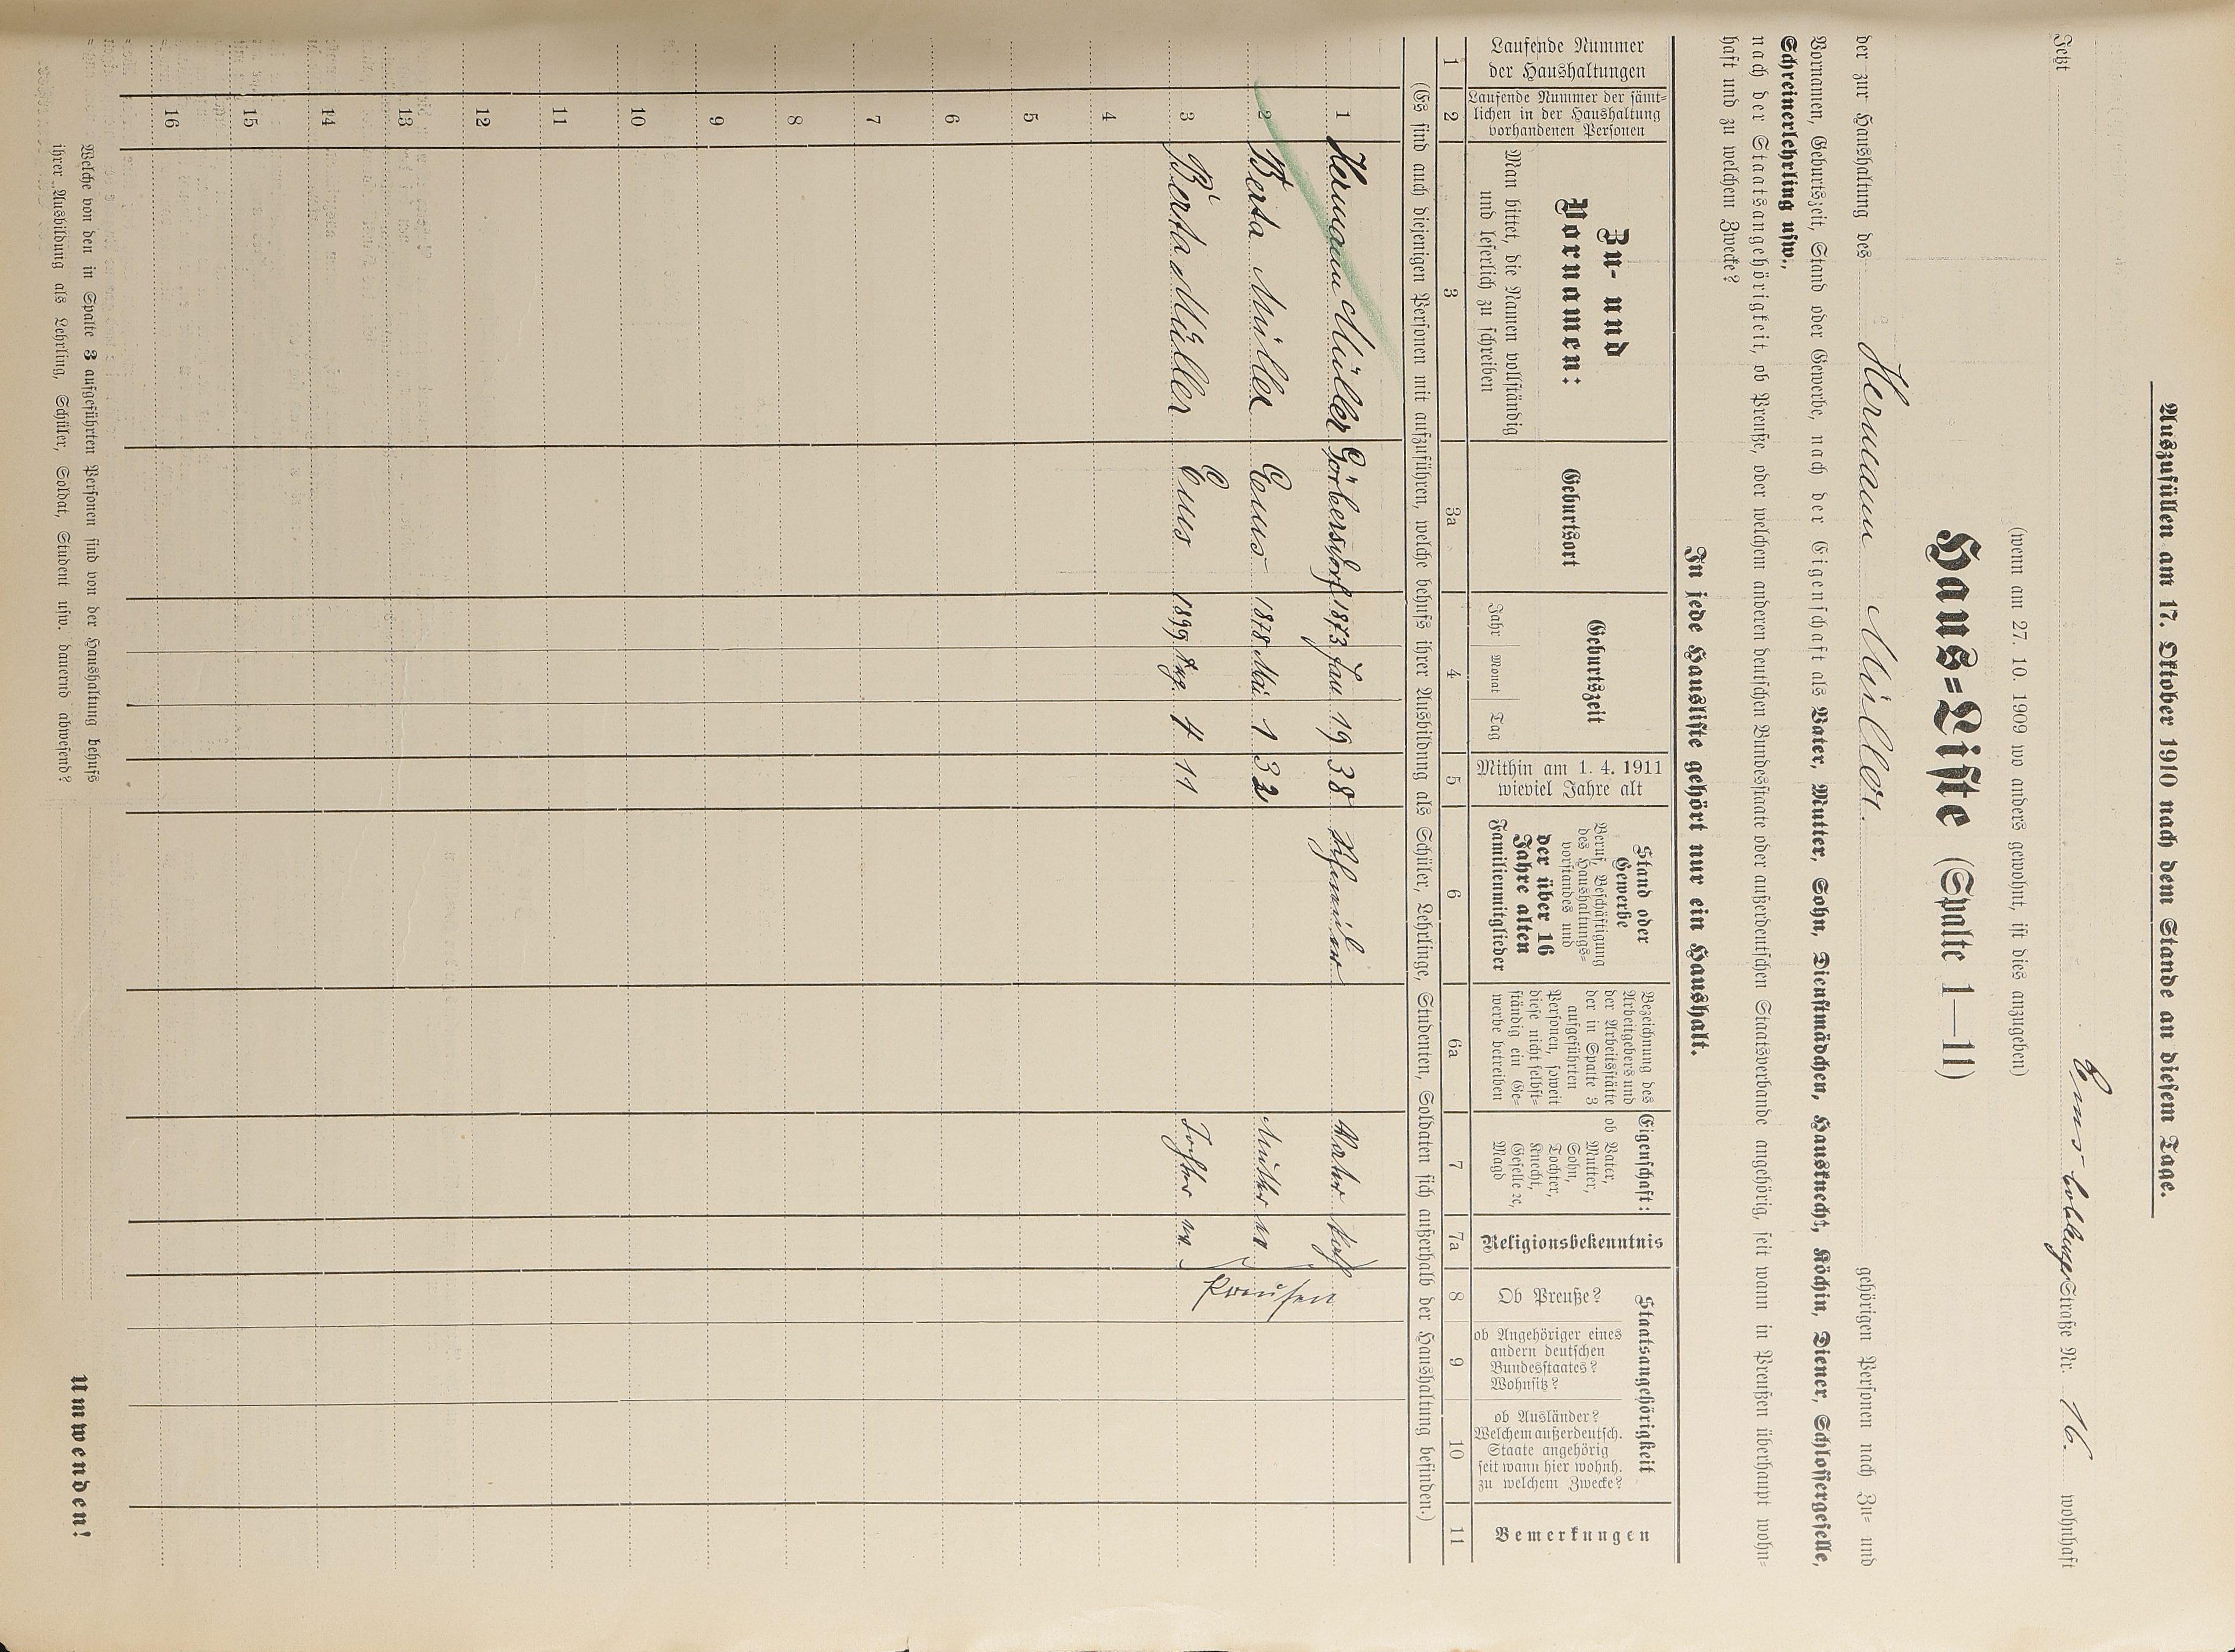 Auszufüllen am 17. Oktober 1910 nach dem Stande an diesem Tage.
Jetzt Straße Nr. 16. wohnhaft
(wenn am 27. 10. 1909 wo anders gewohnt, ist dies anzugeben)
Haus=Liste (Spalte 1—11)
der zur Haushaltung des Hermann Müller. gehörigen Personen nach Zu= und
Vornamen, Geburtszeit, Stand oder Gewerbe, nach der Eigenschaft als Vater, Mutter, Sohn, Dienstmädchen, Hausknecht, Köchin, Diener, Schlossergeselle,
Schreinerlehrling usw.,
nach der Staatsangehörigkeit, ob Preuße, oder welchem anderen deutschen Bundesstaate oder außerdeutschen Staatsverbande angehörig, seit wann in Preußen überhaupt wohn=
haft und zu welchem Zwecke?
In jede Hausliste gehört nur ein Haushalt.
Laufende Nummer
der Haushaltungen
Laufende Nummer der sämt=
lichen in der Haushaltung
vorhandenen Personen
Zu- und
Vornamen:
Man bittet, die Namen vollständig
und leserlich zu schreiben
Geburtsort
Geburtszeit
Jahr Monat Tag
Mithin am 1. 4. 1911
wieviel Jahre alt
Stand oder
Gewerbe
Beruf, Beschäftigung
des Haushaltungs=
vorstandes und
der über 16
Jahre alten
Familienmitglieder
Bezeichnung des
Arbeitgebers und
der Arbeitsstätte
der in Spalte 3
aufgeführten
Personen, soweit
diese nicht selbst=
ständig ein Ge=
werbe betreiben
Eigenschaft:
ob Vater,
Mutter,
Sohn,
Tochter,
Knecht,
Geselle ec,
Magd
Religionsbekenntnis
Staatsangehörigkeit
Ob Preuße?
ob Angehöriger eines
andern deutschen
Bundesstaates?
Wohnsitz?
ob Ausländer?
Welchem außerdeutsch.
Staate angehörig
seit wann hier wohnh.
zu welchem Zwecke?
Bemerkungen
1 2 3 3a 4 5 6 6a 7 7a 8 9 10 11
(Es sind auch diejenigen Personen mit aufzuführen, welche behufs ihrer Ausbildung als Schüler, Lehrlinge, Studenten, Soldaten sich außerhalb der Haushaltung befinden.)
1 Hermann Müller Görbersdorf 1873 Jan 19 38 Vater Kath
2 Berta Müller Ems 1878 Mai 1 32 Mutter
3 Berta Müller Ems 1899 Aug. 4 11 Tochter
Preußen
4
5
6
7
8
9
10
11
12
13
14
15
16
Welche von den in Spalte 3 aufgeführten Personen sind von der Haushaltung behufs
ihrer Ausbildung als Lehrling, Schüler, Soldat, Student usw. dauernd abwesend?
Umwenden!